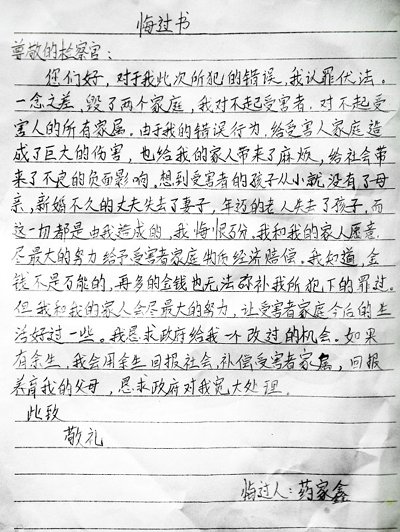 悔过书
尊敬的检察官：
你们好，对于我此次所犯的错误，我认罪伏法。
一念之差，毁了两个家庭，我对不起受害者，对不起受
害人的所有家属。由于我的错误行为，给受害人家庭造
成了巨大的伤害，也给我的家人带来了麻烦，给社会带
来了不良的负面影响，想到受害者的孩子从小就没有了母
亲，新婚不久的丈夫失去了妻子，年迈的老人失去了孩子，而
这一切都是由我造成的，我悔恨万分，我和我的家人愿意
尽最大的努力给予受害者家庭物质经济赔偿。我知道，金
钱不是万能的，再多的金钱也无法弥补我所犯下的罪过。
但我和我的家人会尽最大的努力，让受害者家庭今后的生
活好过一些。我恳求政府给我一个改过的机会。如果
有余生，我会用余生回报社会，补偿受害者家属，回报
养育我的父母，恳求政府对我宽大处理。
此致
敬礼
悔过人：药家鑫